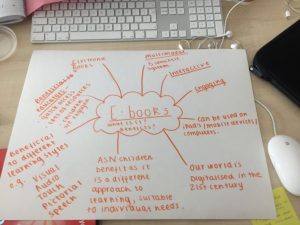 Electronic
Books
Multimodal
Interactive
Engaging
E-books
What is it?
Benefits?
can be used on
iPads/mobile devices/
computers.
Our world is
Digitalised in the
21st century
ASN children
benefit as it
is a different
approach to
learning, suitable
to individual needs.
Beneficial
to different
learning styles
e.g. Visual
Audio
Touch
Pictorial
Speech